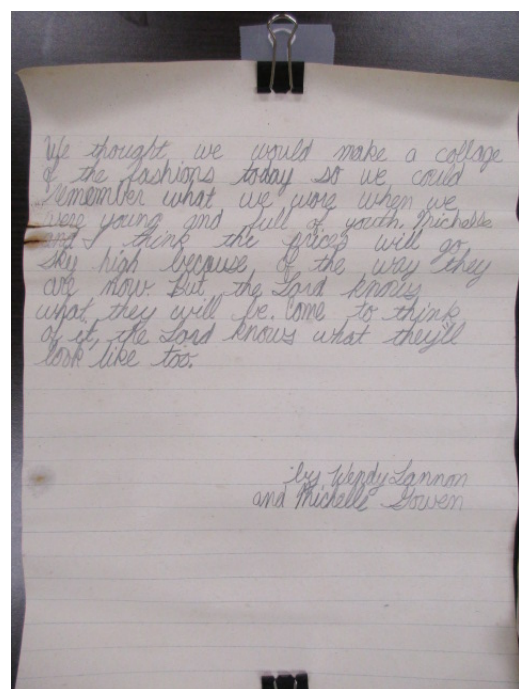 We thought we would make a collage
of the fashions today so we could
remember what we wore when we
were young and full of youth. Michelle
and I think the prices will go
sky high because of the way they
are now. But the Lord knows
what they will be. Come to think
of it, the Lord knows what they'll
look like too.
by Wendy Lannon
and Michelle Gowen